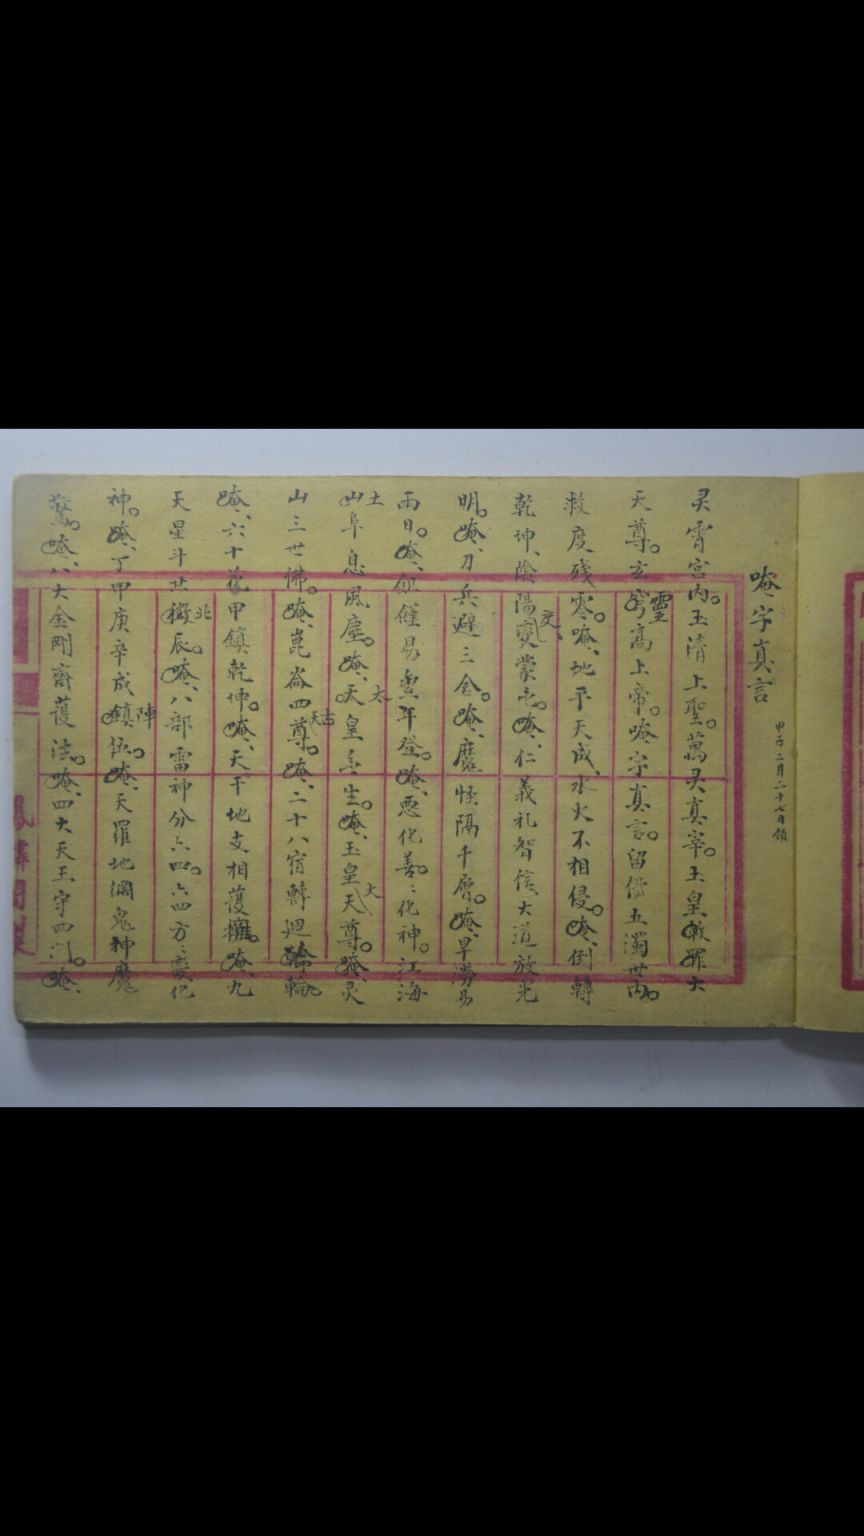 唵字真言
甲子二月二十七日領
灵霄宫内。玉清上聖。萬灵真宰。玉皇赦罪大
天尊。玄穹高上帝。唵字真言。留傳五濁世内。
靈
救度殘零。唵、地平天成、水火不相侵。唵、倒轉
乾坤、陰陽變蒙屯。唵、仁義礼智信、大道放光
交
明。唵、刀兵避三舍。唵、魔怪隔千層。唵、旱澇易
雨日。唵、饑饉易豊年登。唵、悪化善。〻化神。江海
山阜息風塵。唵、天皇無生。唵、玉皇天尊。唵、灵
土
太
大
山三世佛。唵、崑崙四尊。唵、二十八宿轉迴輪
古
天
唵、六十花甲鎮乾坤。唵、天干地支相護擁。唵、九
天星斗共辰。唵、八部雷神分六四。六四方〻變化
北
神。唵、丁甲庚辛成鎮伍。唵、天羅地網鬼神魔
陣
驚。唵、八大金剛齊護法。唵、四大天王守四門。唵、